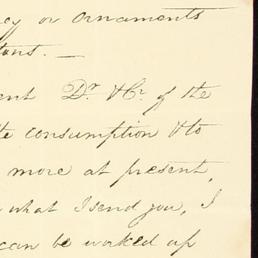 or ornaments
tons. —
Dr. & Cr. of the
consumption & to
more at present,
what I send you, I
can be worked up